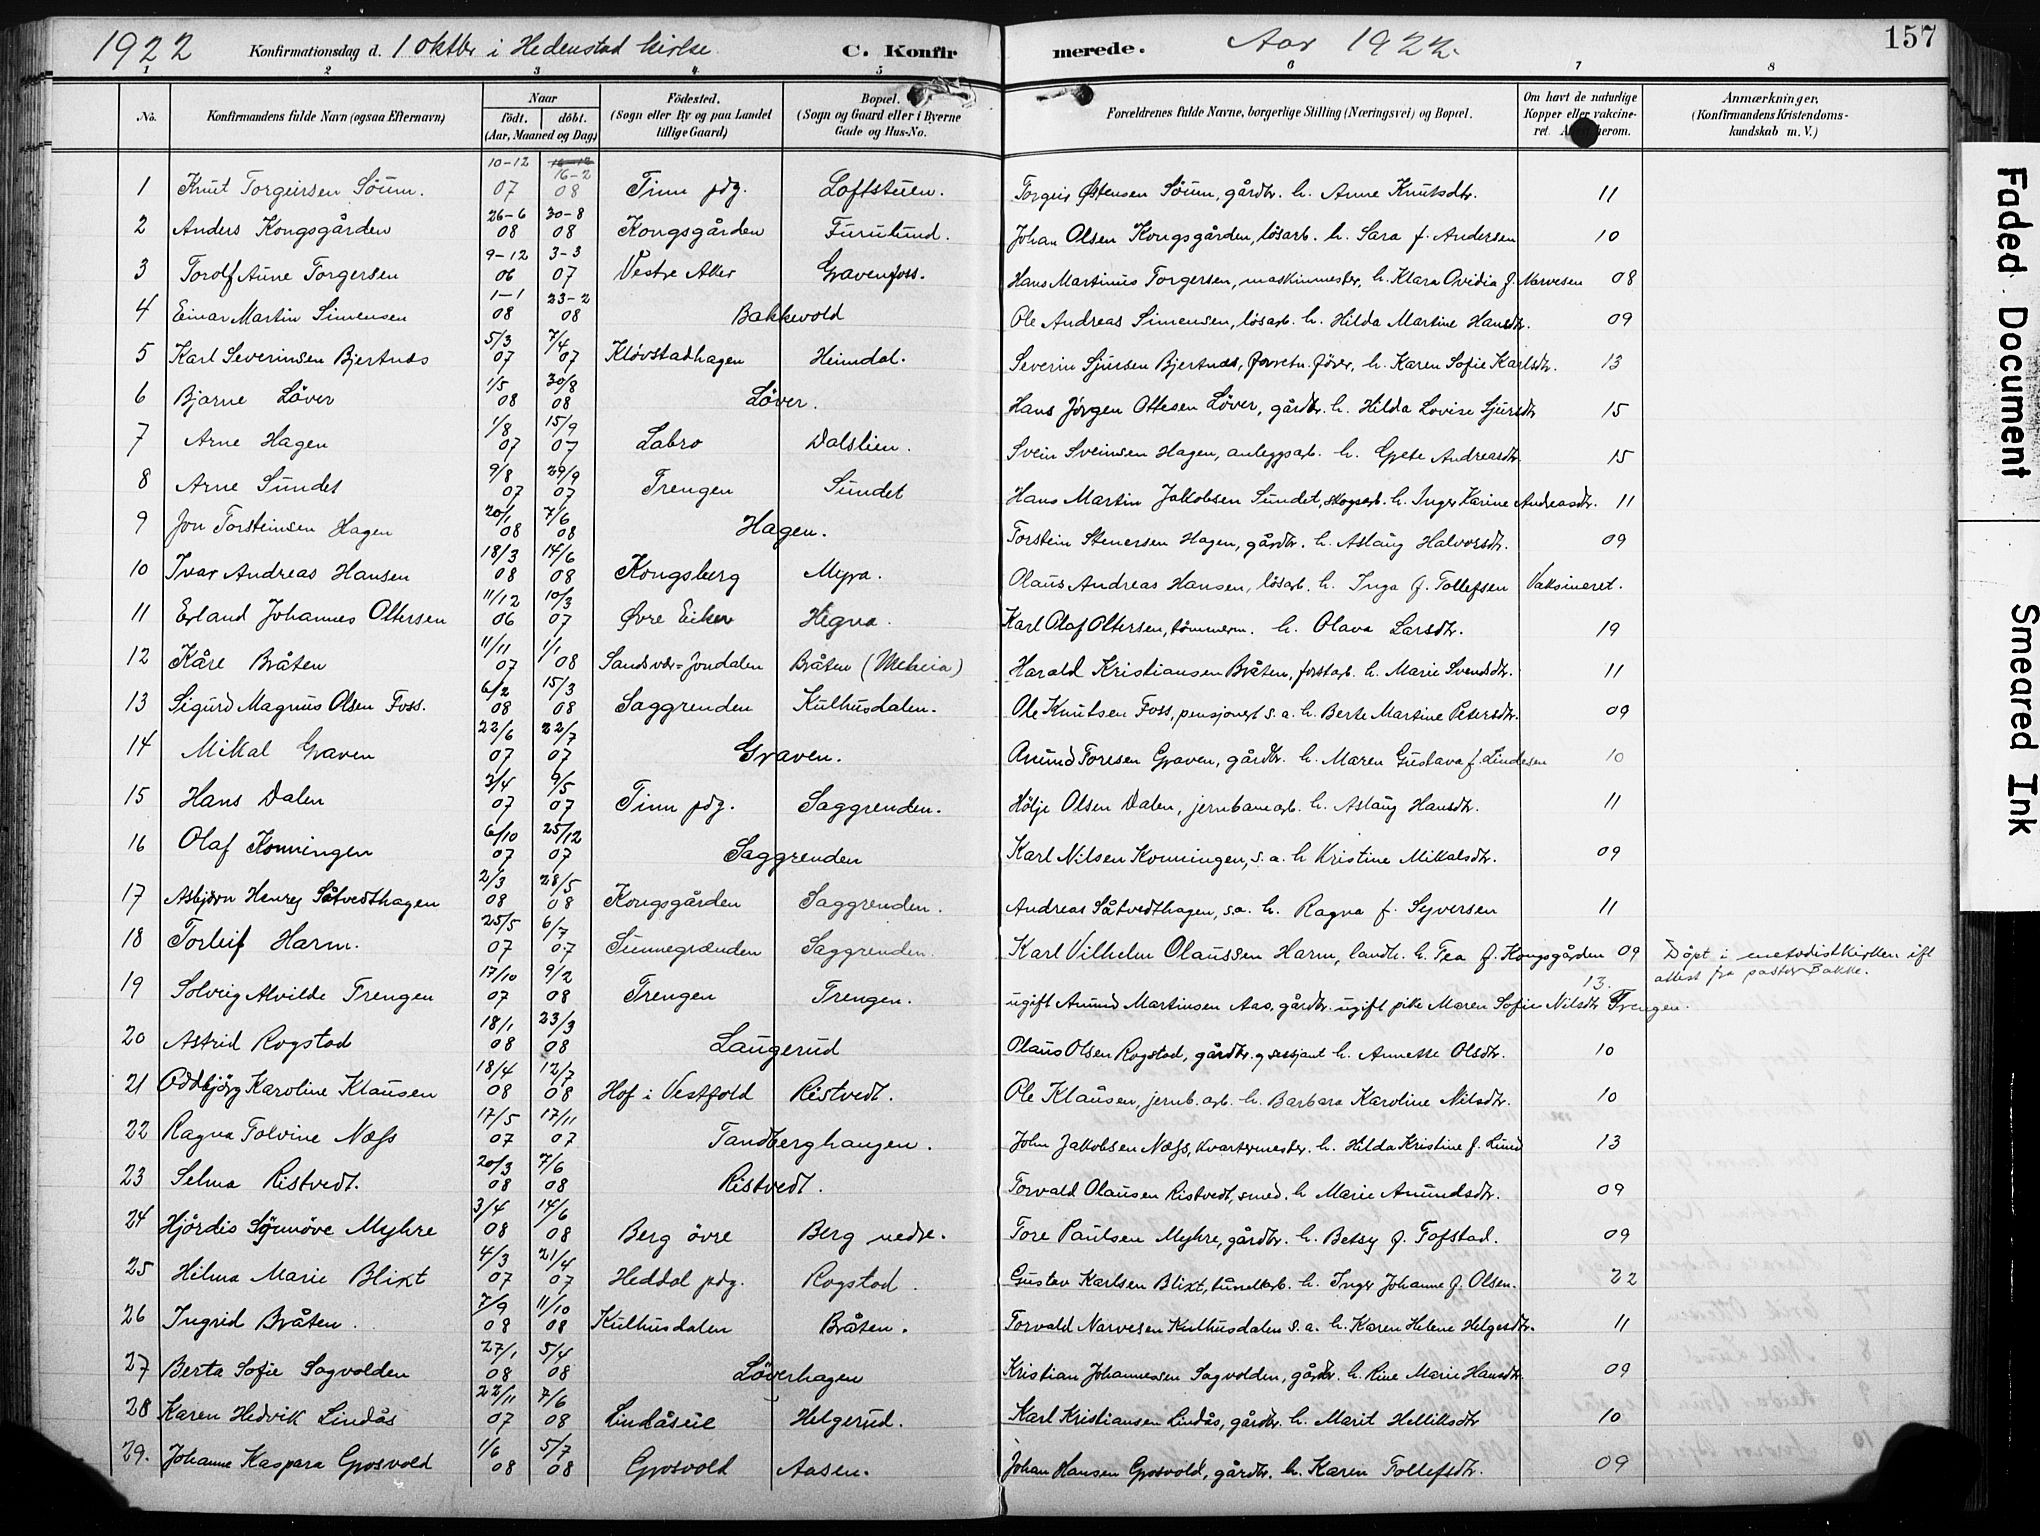 1922 Konfirmationsdag d. 1 oktbr i Hedenstad kirke. C. Konfirmerede. Aar 1922. 157
1 2 3 4 5 6 7 8
No. Konfirmandens fulde Navn (ogsaa Efternavn) Naar født. døbt. (Aar, Maaned og Dag) Fødested. (Sogn eller By og paa Landet tillige Gaard) Bopæl. (Sogn og Gaard eller i Byerne Gade og Hus-No. Forældrenes fulde Navne, borgerlige Stilling (Næringsvei) og Bopæl. Om havt de naturlige Kopper eller vakcineret. herom. Anmærkninger, (Konfirmandens Kristendomskundskab m. V.)
1 Knut Torgeirsen Söum. 10-12 07 16-2 08 Tinn pdg. Loftstuen. Torgeir Østensen Söum, gårdbr. h. Anne Knutsdtr. 11
2 Anders Kongsgården 26-6 08 30-8 08 Kongsgården Furulund. Johan Olsen Kongsgården, lösarb. h. Sara f. Andersen 10
3 Torolf Aune Torgersen 9-12 06 3-3 07 Vestre Aker Gravenfoss. Hans Martinus Torgersen, maskinmester, h. Klara Ovidia f. Narvesen 08
4 Einar Martin Simensen 1-1 08 23-2 08 Bakkevold Ole Andreas Simensen, lösarb. h. Hilda Martine Hansdtr. 09
5 Karl Severinsen Bjertnæs 5/3 07 7/4 07 Klövstadhagen Heimdal. Severin Sjursen Bjertnæs, forretn. förer, h. Karen Sofie Karlsdtr. 13
6 Bjarne Löver 1/5 08 30/8 08 Löver. Hans Jörgen Ottesen Löver, gårdbr. h. Hilda Lovise Sjursdtr 15
7 Arne Hagen 1/8 07 15/9 07 Labro Dalslien. Svein Sveinsen Hagen, anleggsarb. h. Grete Andreasdtr. 15
8 Arne Sundet 9/8 07 29/9 07 Trengen Sundet Hans Martin Jakobsen Sundet, skogsarb. h. Inger Karine Andreasdtr. 11
9 Jon Torsteinsen Hagen 20/1 08 7/6 08 Hagen. Torstein Stenersen Hagen, gårdbr. h. Aslaug Halvorsdtr. 09
10 Ivar Andreas Hansen 18/3 08 14/6 08 Kongsberg Myra. Olaus Andreas Hansen, lösarb. h. Inga f. Tollefsen Vaksineret.
11 Erland Johannes Oltersen 11/12 06 10/3 07 Øvre Eiker Hegna. Karl Olaf Oltersen, tömmerm. h. Olava Larsdtr. 19
12 Kåre Bråten 11/11 07 1/1 08 Sandsvær-Jondalen Bråten (Meheia) Harald Kristiansen Bråten, forstarb. h. Marie Svendsdtr. 11
13 Sigurd Magnus Olsen Foss. 6/2 08 15/3 08 Saggrenden Kulhusdalen. Ole Knutsen Foss, pensjonert s.a. h. Berte Martine Petersdtr. 09
14 Mikal Graven 22/6 07 22/7 07 Graven. Anund Toresen Graven, gårdbr. h. Maren Gustava f. Lindesen 10
15 Hans Dalen 3/4 07 9/5 07 Tinn pdg. Saggrenden. Hölje Olsen Dalen, jernbanearb. h. Aslaug Hansdtr. 11
16 Olaf Konningen 6/10 07 25/12 07 Saggrenden Karl Nilsen Konningen, s.a. h Kristine Mikalsdtr. 09
17 Asbjørn Henry Såtvedthagen 2/3 08 28/5 08 Kongsgården Saggrenden. Andreas Såtvedthagen, s.a. h. Ragna f. Syversen 11
18 Torleif Harm. 25/5 07 6/7 07 Sunnegrænden Saggrenden. Karl Vilhelm Olaussen Harm, landh. h. Tea f. Kongsgården 09 Döpt i metodistkirken ifl attest fra pastor Bakke.
19 Solveig Alvilde Trengen 17/10 07 9/2 08 Trengen Trengen. ugift Anund Martinsen Aas, gårdbr. ugift pike Maren Sofie Nilsdtr Trengen. 13.
20 Astrid Rogstad 18/1 08 23/3 08 Laugerud Olaus Olsen Rogstad, gårdbr. og sersjant h. Annette Olsdtr. 10
21 Oddbjörg Karoline Klausen 18/4 08 12/7 08 Hof i Vestfold Ristvedt. Ole Klausen, jernb.arb. h. Barbara Karoline Nilsdtr. 10
22 Ragna Tolvine Næss 17/5 07 17/11 07 Tandberghaugen. John Jakobsen Næss, kvartermester. h. Hilda Kristine f. Lund 13
23 Selma Ristvedt. 20/3 08 7/6 08 Ristvedt. Torvald Olausen Ristvedt, smed. h Marie Anundsdtr. 09
24 Hjördis Synnöve Myhre 3/4 08 14/6 08 Berg övre Berg nedre. Tore Paulsen Myhre, gårdbr. h. Betsy f. Tofstad. 09
25 Hilma Marie Blixt 4/3 07 21/4 07 Heddal pdg. Rogstad. Gustav Karlsen Blixt, tunnelarb. h. Inger Johanne f. Olsen. 22
26 Ingrid Bråten. 7/9 08 11/10 08 Kulhusdalen Bråten. Torvald Narvesen Kulhusdalen s.a. h. Karen Helene Helgesdtr. 11
27 Berta Sofie Sagvolden 27/1 08 5/4 08 Löverhagen Kristian Johannessen Sagvolden, gårdbr. h. Rine Marie Hansdtr. 09
28 Karen Hedvik Lindås 22/11 07 7/6 08 Lindåseie Helgerud. Karl Kristiansen Lindås, gårdbr. h. Marit Helliksdtr 10
29. Johanne Kaspara Grosvold 1/6 08 5/7 08 Grosvold Aasen. Johan Hansen Grosvold, gårdbr. h. Karen Tollefsdtr. 09
Faded Document
Smeared Ink